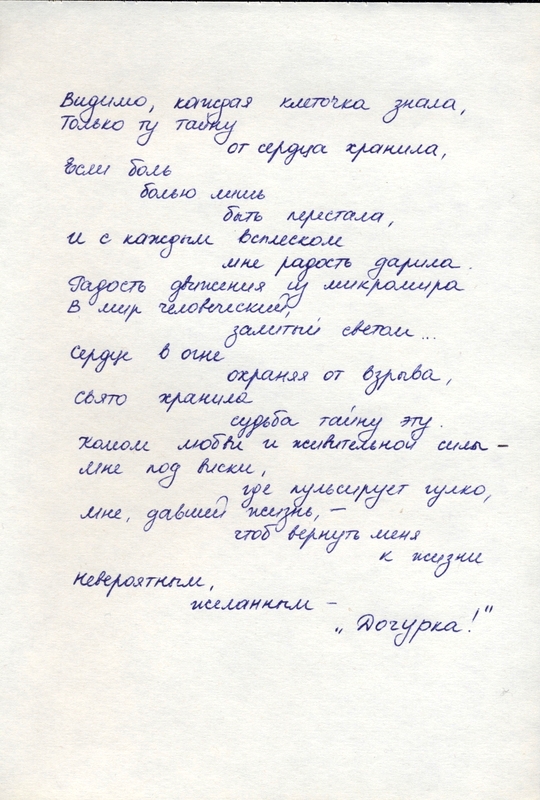 Видимо, каждая клеточка знала,
Только ту тайну
от сердца хранила,
Если боль
болью лишь
быть перестала,
И с каждым всплеском
мне радость дарила.
Радость движения из микромира
В мир человеческий,
залитый светом...
Сердце в огне
охраняя от взрыва,
Свято хранила
судьба тайну эту.
Комом любви и живительной силы –
Мне под виски,
где пульсирует гулко,
Мне, давшей жизнь, –
чтоб вернуть меня
к жизни
Невероятным,
желанным –
„Дочурка!"